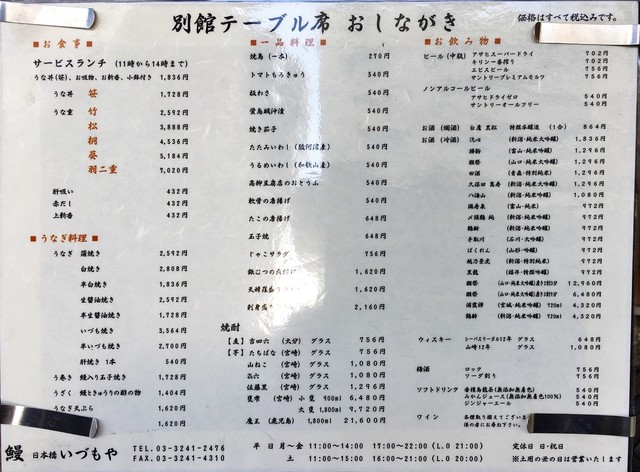 別館テーブル席 おしながき
価格はすべて税込みです。
■お食事■
サービスランチ (11時から14時まで)
うな丼(笹)、お吸物、お新香、小鉢付き 1,836円
うな丼 笹 1,728円
うな重 竹 2,592円
松 3,888円
桐 4,536円
葵 5,184円
羽二重 7,020円
肝吸い 432円
赤だし 432円
上新香 432円
■うなぎ料理■
うなぎ 蒲焼き 2,592円
白焼き 2,808円
半白焼き 1,836円
生醤油焼き 2,592円
半生醤油焼き 1,728円
いづも焼き 3,564円
半いづも焼き 2,700円
肝焼き 1本 540円
う巻き 鰻入り玉子焼き 1,728円
うざく 鰻ときゅうりの酢の物 1,404円
うなぎ天ぷら 1,620円
1,620円
■一品料理■
焼鳥(一本) 270円
トマトもろきゅう 540円
板わさ 540円
蛍烏賊沖漬 540円
焼き茄子 540円
たたみいわし(駿河湾産) 540円
うるめいわし(和歌山産) 540円
高柳豆腐店のおとうふ 540円
軟骨の唐揚げ 540円
たこの唐揚げ 648円
玉子焼 648円
じゃこサラダ 756円
1,620円
1,620円
2,160円
焼酎
【麦】吉四六 (大分) グラス 756円
【芋】たちばな (宮崎) グラス 756円
山ねこ (宮崎) グラス 1,080円
㐂六 (宮崎) グラス 1,080円
佐藤黒 (宮崎) グラス 1,296円
甕雫 (宮崎) 小 甕 900ml 6,480円
大 甕 1,800ml 9,720円
魔王 (鹿児島) 1,800ml 21,600円
■お飲み物■
ビール(中瓶) アサヒスーパードライ 702円
キリン一番搾り 702円
エビスビール 756円
サントリープレミアムモルツ 756円
ノンアルコールビール
アサヒドライゼロ 540円
サントリーオールフリー 540円
お酒(燗酒) 白鷹 黒松 特別本醸造 (1合) 864円
お酒(冷酒) 洗心 (新潟・純米大吟醸) 1,836円
勝駒 (富山・純米吟醸) 1,296円
獺祭 (山口・純米大吟醸) 1,296円
田酒 (青森・特別純米) 1,296円
久保田 萬寿 (新潟・純米大吟醸) 1,296円
八海山 (新潟・純米吟醸) 1,080円
満寿泉 (富山・純米) 972円
〆張鶴 純 (新潟・純米吟醸) 972円
鶴齢 (新潟・純米吟醸) 972円
手取川 (石川・大吟醸) 972円
ばくれん (山形・吟醸) 972円
越乃景虎 (新潟・純米) 972円
黒龍 (福井・特吟醸) 972円
獺祭 (山口・純米大吟醸)磨き2割3分 12,960円
獺祭 6,480円
浦霞禅 (宮城・純米吟醸) 720ml 4,320円
鶴齢 (新潟・純米吟醸) 720ml 4,320円
ウィスキー シーバスリーガル12年 グラス 648円
山崎12年 グラス 1,080円
梅酒 ロック 756円
ソーダ割り 756円
ソフトドリンク 香檳烏龍茶(無添加無着色) 540円
みかんジュース(無添加無着色100%) 540円
ジンジャーエール 540円
ワイン 各種取り揃えてございます
係の者にお尋ね下さい。
鰻 日本橋 いづもや
TEL.03-3241-2476
FAX.03-3241-4310
平日 月〜金 11:00〜14:00 17:00〜22:00 (L.O 21:00)
土 11:00〜15:00 16:00〜21:00 (L.O 20:00)
定休日 日・祝日
※土用の丑の日は営業いたします